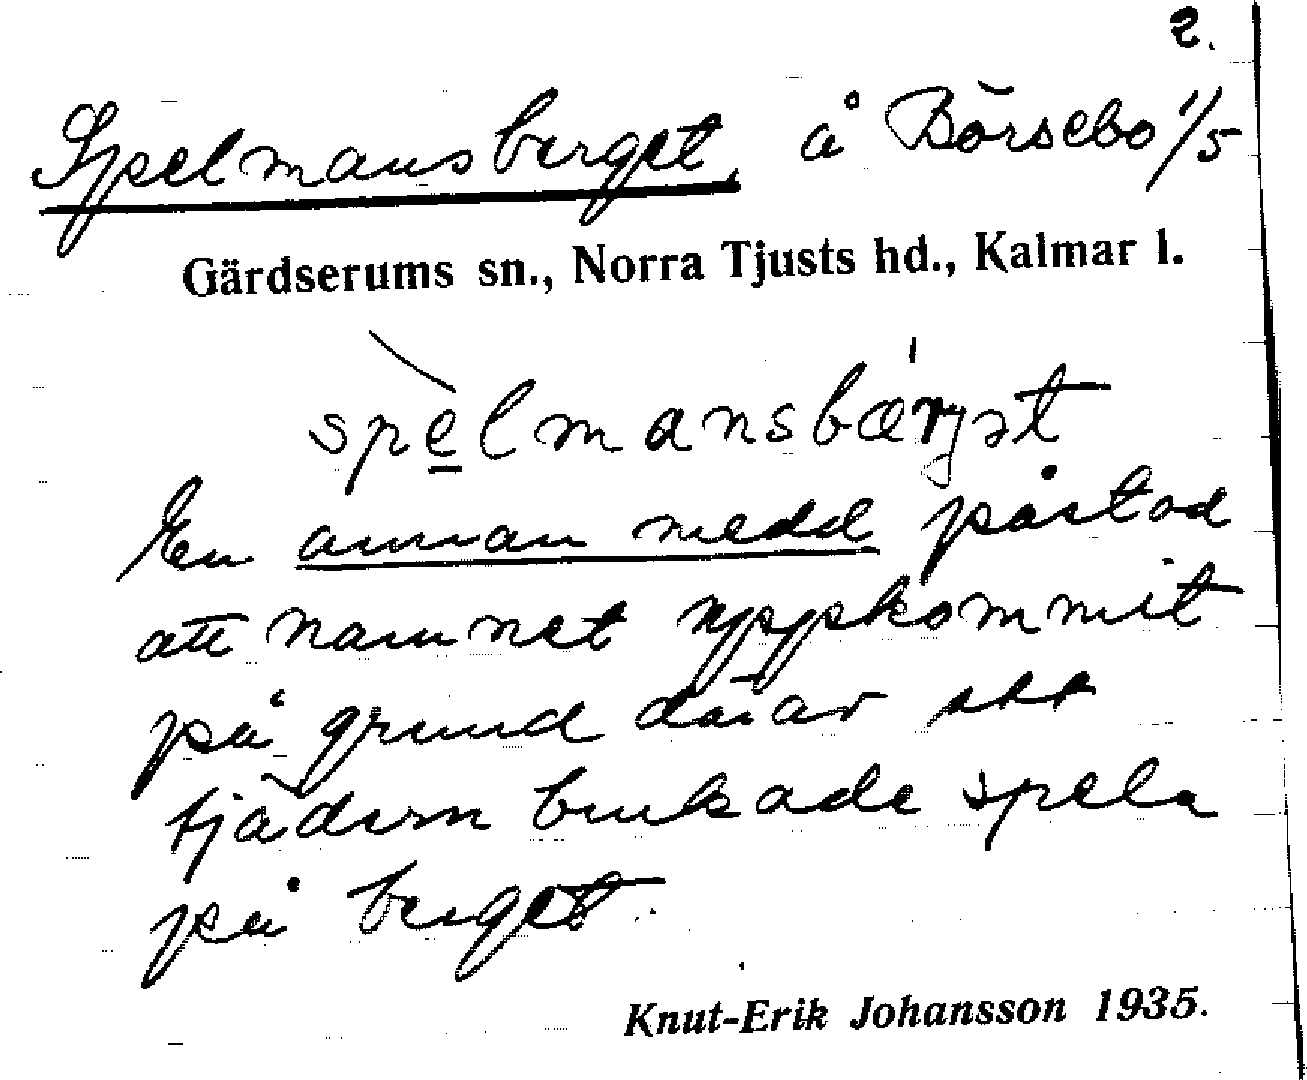 2.
Spelmansberget, å Börsebo 1/5
Gärdserums sn., Norra Tjusts hd., Kalmar l.
spelmansbærjət
En annan medd påstod
att namnet uppkommit
på grund därav att
tjädern brukade spela
på berget.
Knut-Erik Johansson 1935.